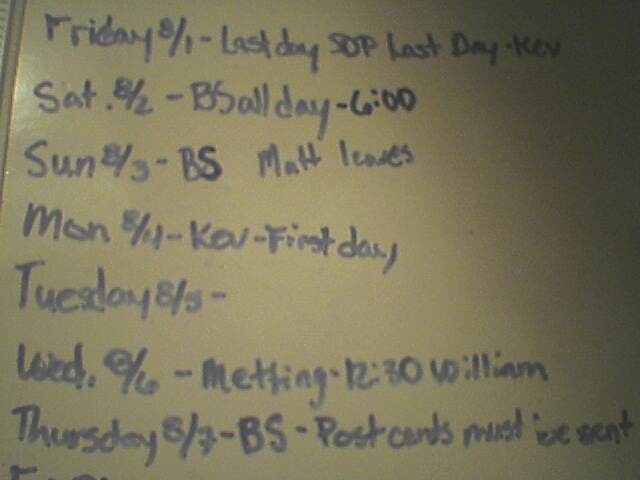 Friday 8/1 - Last day SDP Last Day - Kev
Sat. 8/2 - BS all day - 6:00
Sun 8/3 - BS Matt leaves
Mon 8/4 - Kev - First day
Tuesday 8/5 -
Wed. 8/6 - Metting - 12:30 William
Thursday 8/7 - BS - Postcards must be sent